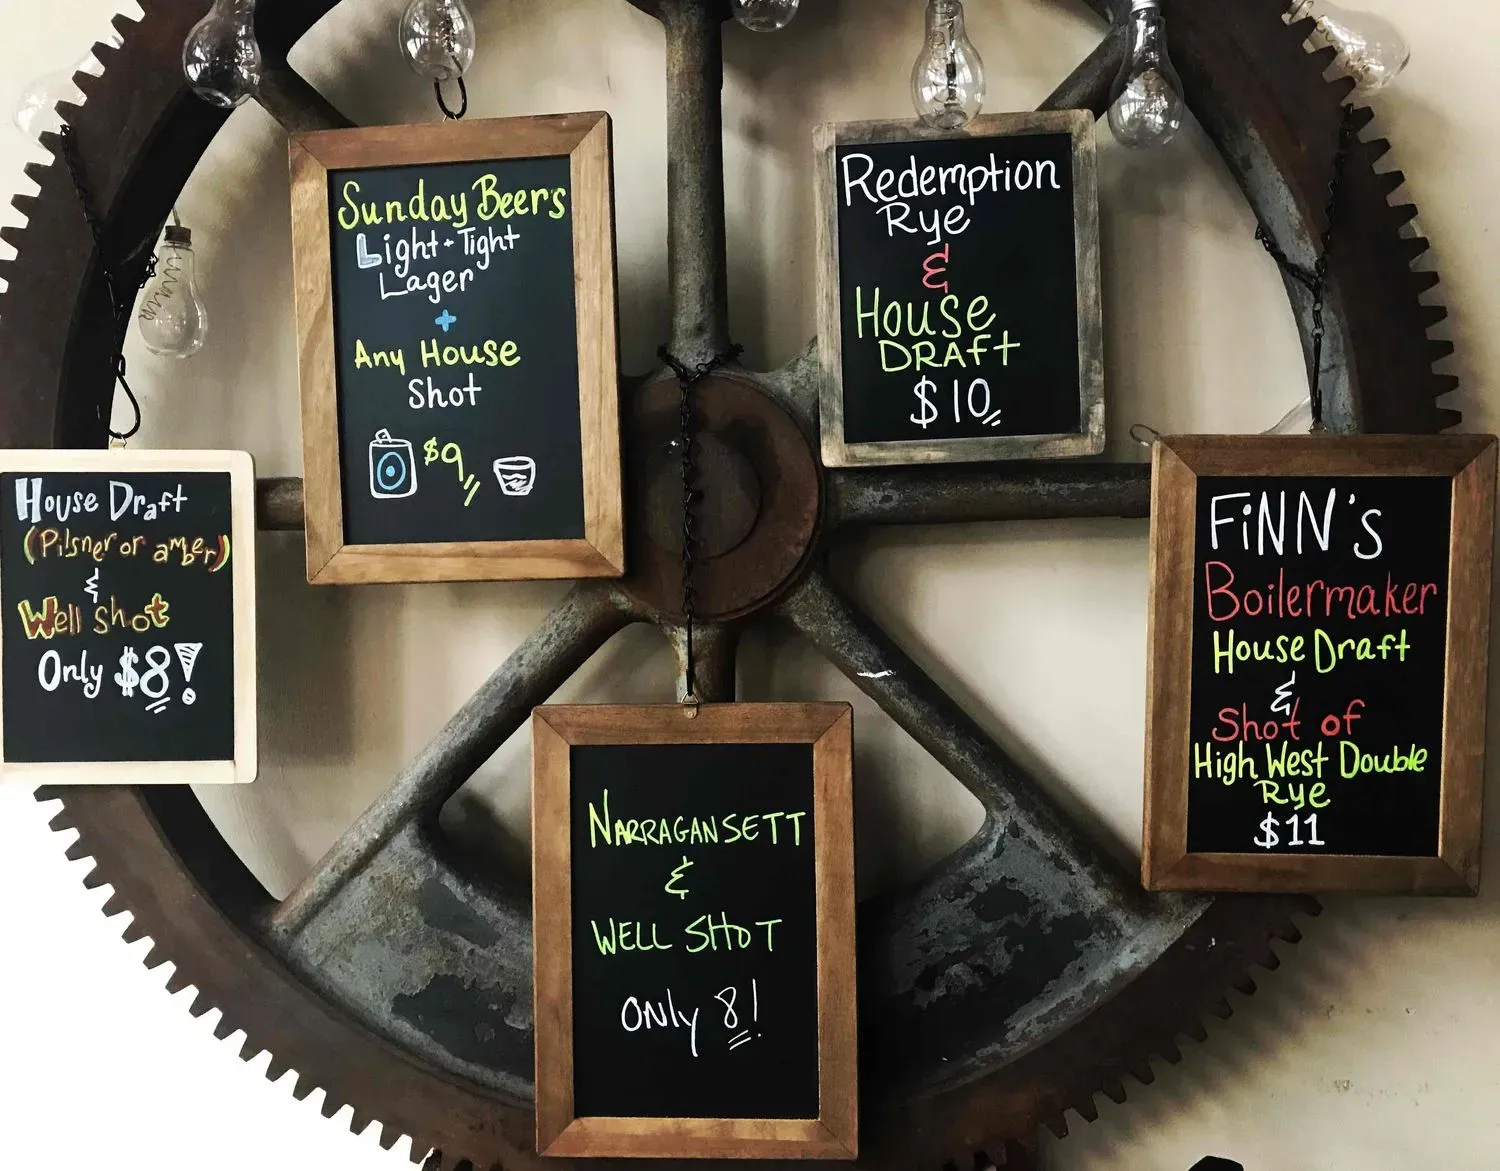 Sunday Beers
Light + Tight
Lager
+
Any House
Shot
$9
Redemption
Rye
&
House
DRAFT
$10
House Draft
(Pilsner or amber)
&
Well Shot
Only $8!
FiNN's
Boilermaker
House Draft
&
Shot of
High West Double
Rye
$11
NARRAGANSETT
&
WELL SHOT
ONly 8!